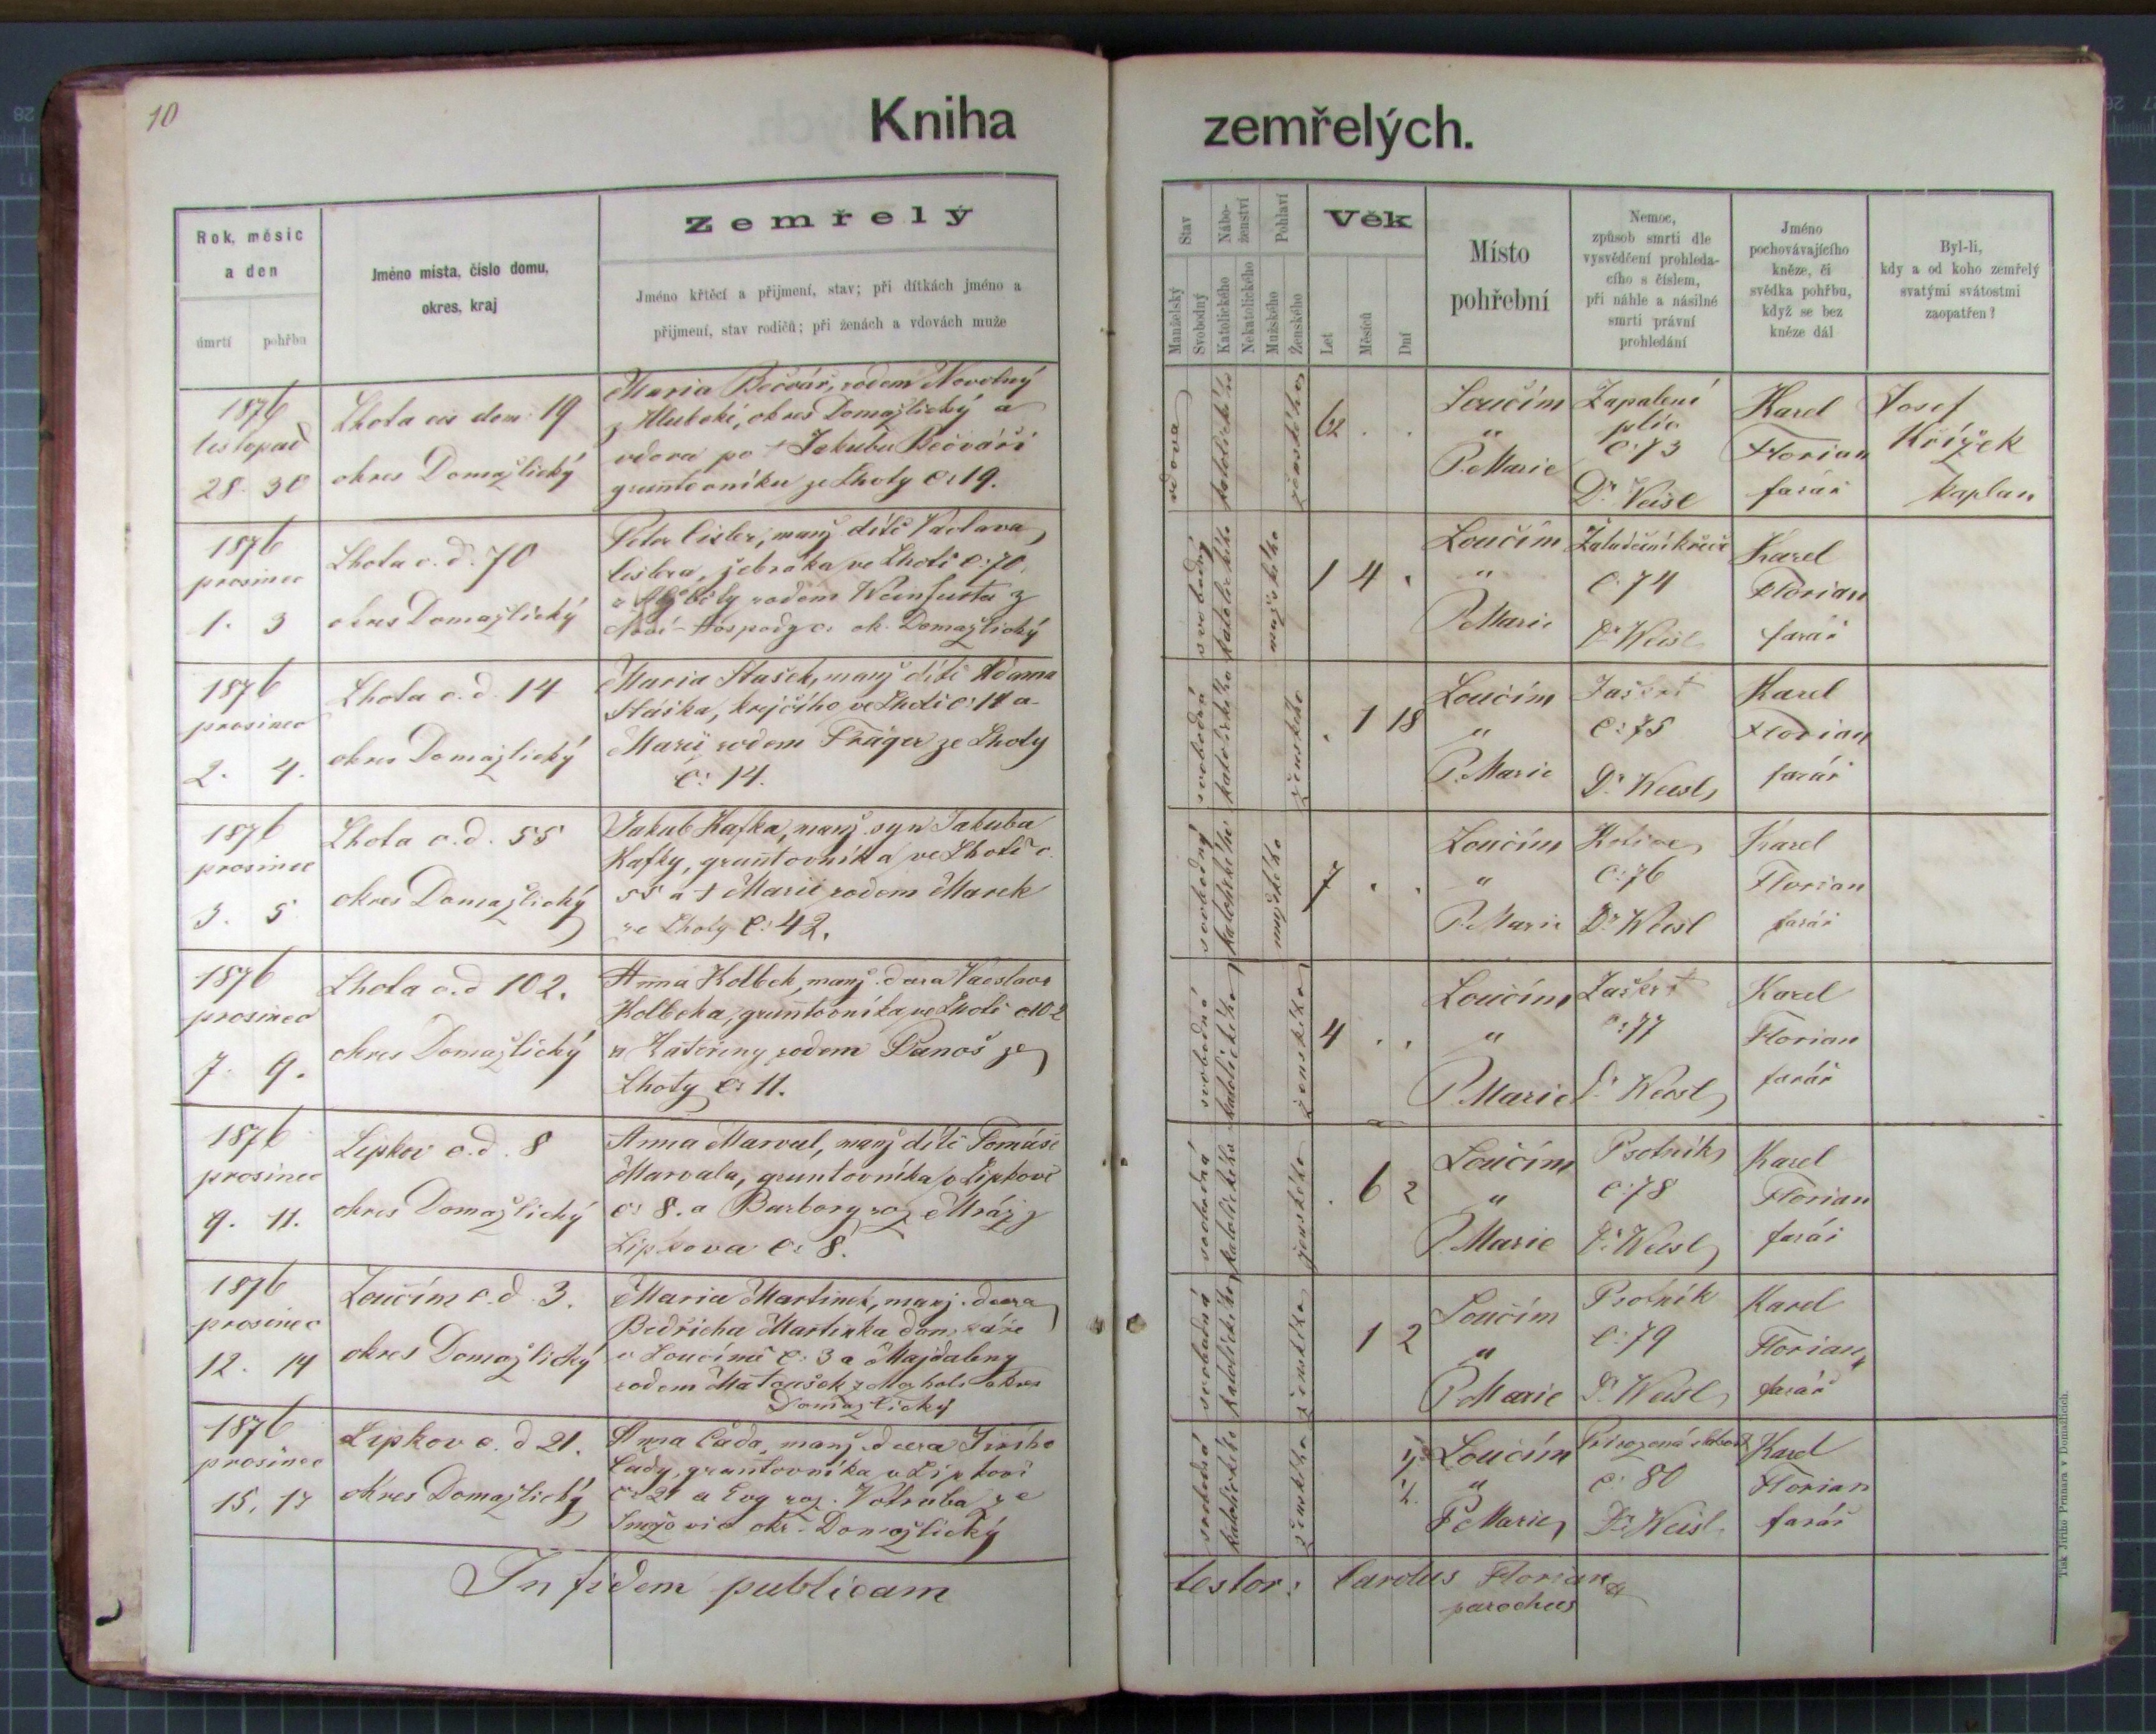 10
Kniha
zemřelých.
Rok, měsíc
a den
úmrtí pohřbu
Jméno místa, číslo domu,
okres, kraj
Zemřelý
Jméno křtěcí a přijmení, stav; při dítkách jméno a
přijmení, stav rodičů; při ženách a vdovách muže
Stav
Manželský
Svobodný
Nábo-
ženství
Katolického
Nekatolického
Pohlaví
Mužského
Ženského
Věk
Let
Měsíců
Dní
Místo
pohřební
Nemoc,
způsob smrti dle
vysvědčení prohleda-
cího s číslem,
při náhle a násilné
smrti právní
prohledání
Jméno
pochovávajícího
kněze, či
svědka pohřbu,
když se bez
kněze dál
Byl-li,
kdy a od koho zemřelý
svatými svátostmi
zaopatřen?
1876
listopad
28. 30
Lhota čís dom: 19
okres Domažlický
Maria Bečvář, rodem Novotný
z Hluboké, okres Domažlický a
vdova po + Jakubu Bečváři
gruntovníku ze Lhoty č: 19.
vdova
katolického
ženského
62 . .
Loučím
"
P. Marie
Zapalení
plic
č: 73
Dr. Weisl
Karel
Florian
farář
Josef
Křížek
kaplan
1876
prosinec
1. 3
Lhota č. d. 70
okres Domažlický
Peter Cisler, manž dítě Václava
Cislera, žebráka ve Lhotě č: 70.
a Alžběty rodem Weinfurta z
Nové-Hospody č. ok. Domažlický
svobodný
katolického
mužského
1 4 .
Loučím
"
P. Marie
Žaludeční křeče
č: 74
Dr Weisl
Karel
Florian
farář
1876
prosinec
2. 4.
Lhota č. d. 14
okres Domažlický
Maria Stašek, manž dítě Adama
Stáška, krejčího ve Lhotě č: 14 a
Marii rodem Träger ze Lhoty
č: 14.
svobodná
katolického
ženského
. 1 18
Loučím
"
P. Marie
Zaškrt
č: 75
Dr. Weisl
Karel
Florian
farář
1876
prosinec
3. 5
Lhota č. d. 55
okres Domažlický
Jakub Kafka, manž. syn Jakuba
Kafky, gruntovníka ve Lhotě č.
55 a + Marii rodem Marek
ze Lhoty č: 42.
svobodný
katolického
mužského
7 . .
Loučím
"
P. Marie
č: 76
Dr Weisl
Karel
Florian
farář
1876
prosinec
7. 9.
Lhota č. d 102.
okres Domažlický
Anna Kolbek, manž. dcera Vaceslava
Kolbeka, gruntovníka ve Lhotě č 102
a Kateřiny rodem Panoš ze
Lhoty č: 11.
svobodná
katolického
ženského
4 . .
Loučím
"
P. Marie
Zaškrt
č: 77
Dr. Weisl
Karel
Florian
farář
1876
prosinec
9. 11.
Lipkov č. d. 8
okres Domažlický
Anna Marval, manž dítě Tomáše
Marvala, gruntovníka v Lipkově
č: 8. a Barbory roz Mráz z
Lipkova č: 8.
svobodná
katolického
ženského
. 6 2
Loučím
"
P. Marie
Psotník
č: 78
Dr. Weisl
Karel
Florian
farář
1876
prosinec
12. 14
Loučím č. d. 3.
okres Domažlický
Maria Martinek, manž. dcera
Bedřicha Martinka domkáře
v Loučímě č: 3 a Majdaleny
rodem Matoušek z okres
Domažlický
svobodná
katolického
ženského
1 2
Loučím
"
P. Marie
Psotník
č: 79
Dr. Weisl
Karel
Florian
farář
1876
prosinec
15. 17
Lipkov č. d 21.
okres Domažlický
Anna Cada, manž. dcera Jiřího
Cady, gruntovníka v Lipkově
č: 21 a Evy roz. Votruba ze
Smržovic okr. Domažlický
svobodná
katolického
ženského
Loučím
"
P. Marie
Přirozená slabost
č: 80
Dr. Weisl
Karel
Florian
farář
In fidem publicam
testor: Carolus Florian
parochus
Tisk Jiřího Prunara v Domažlicích.